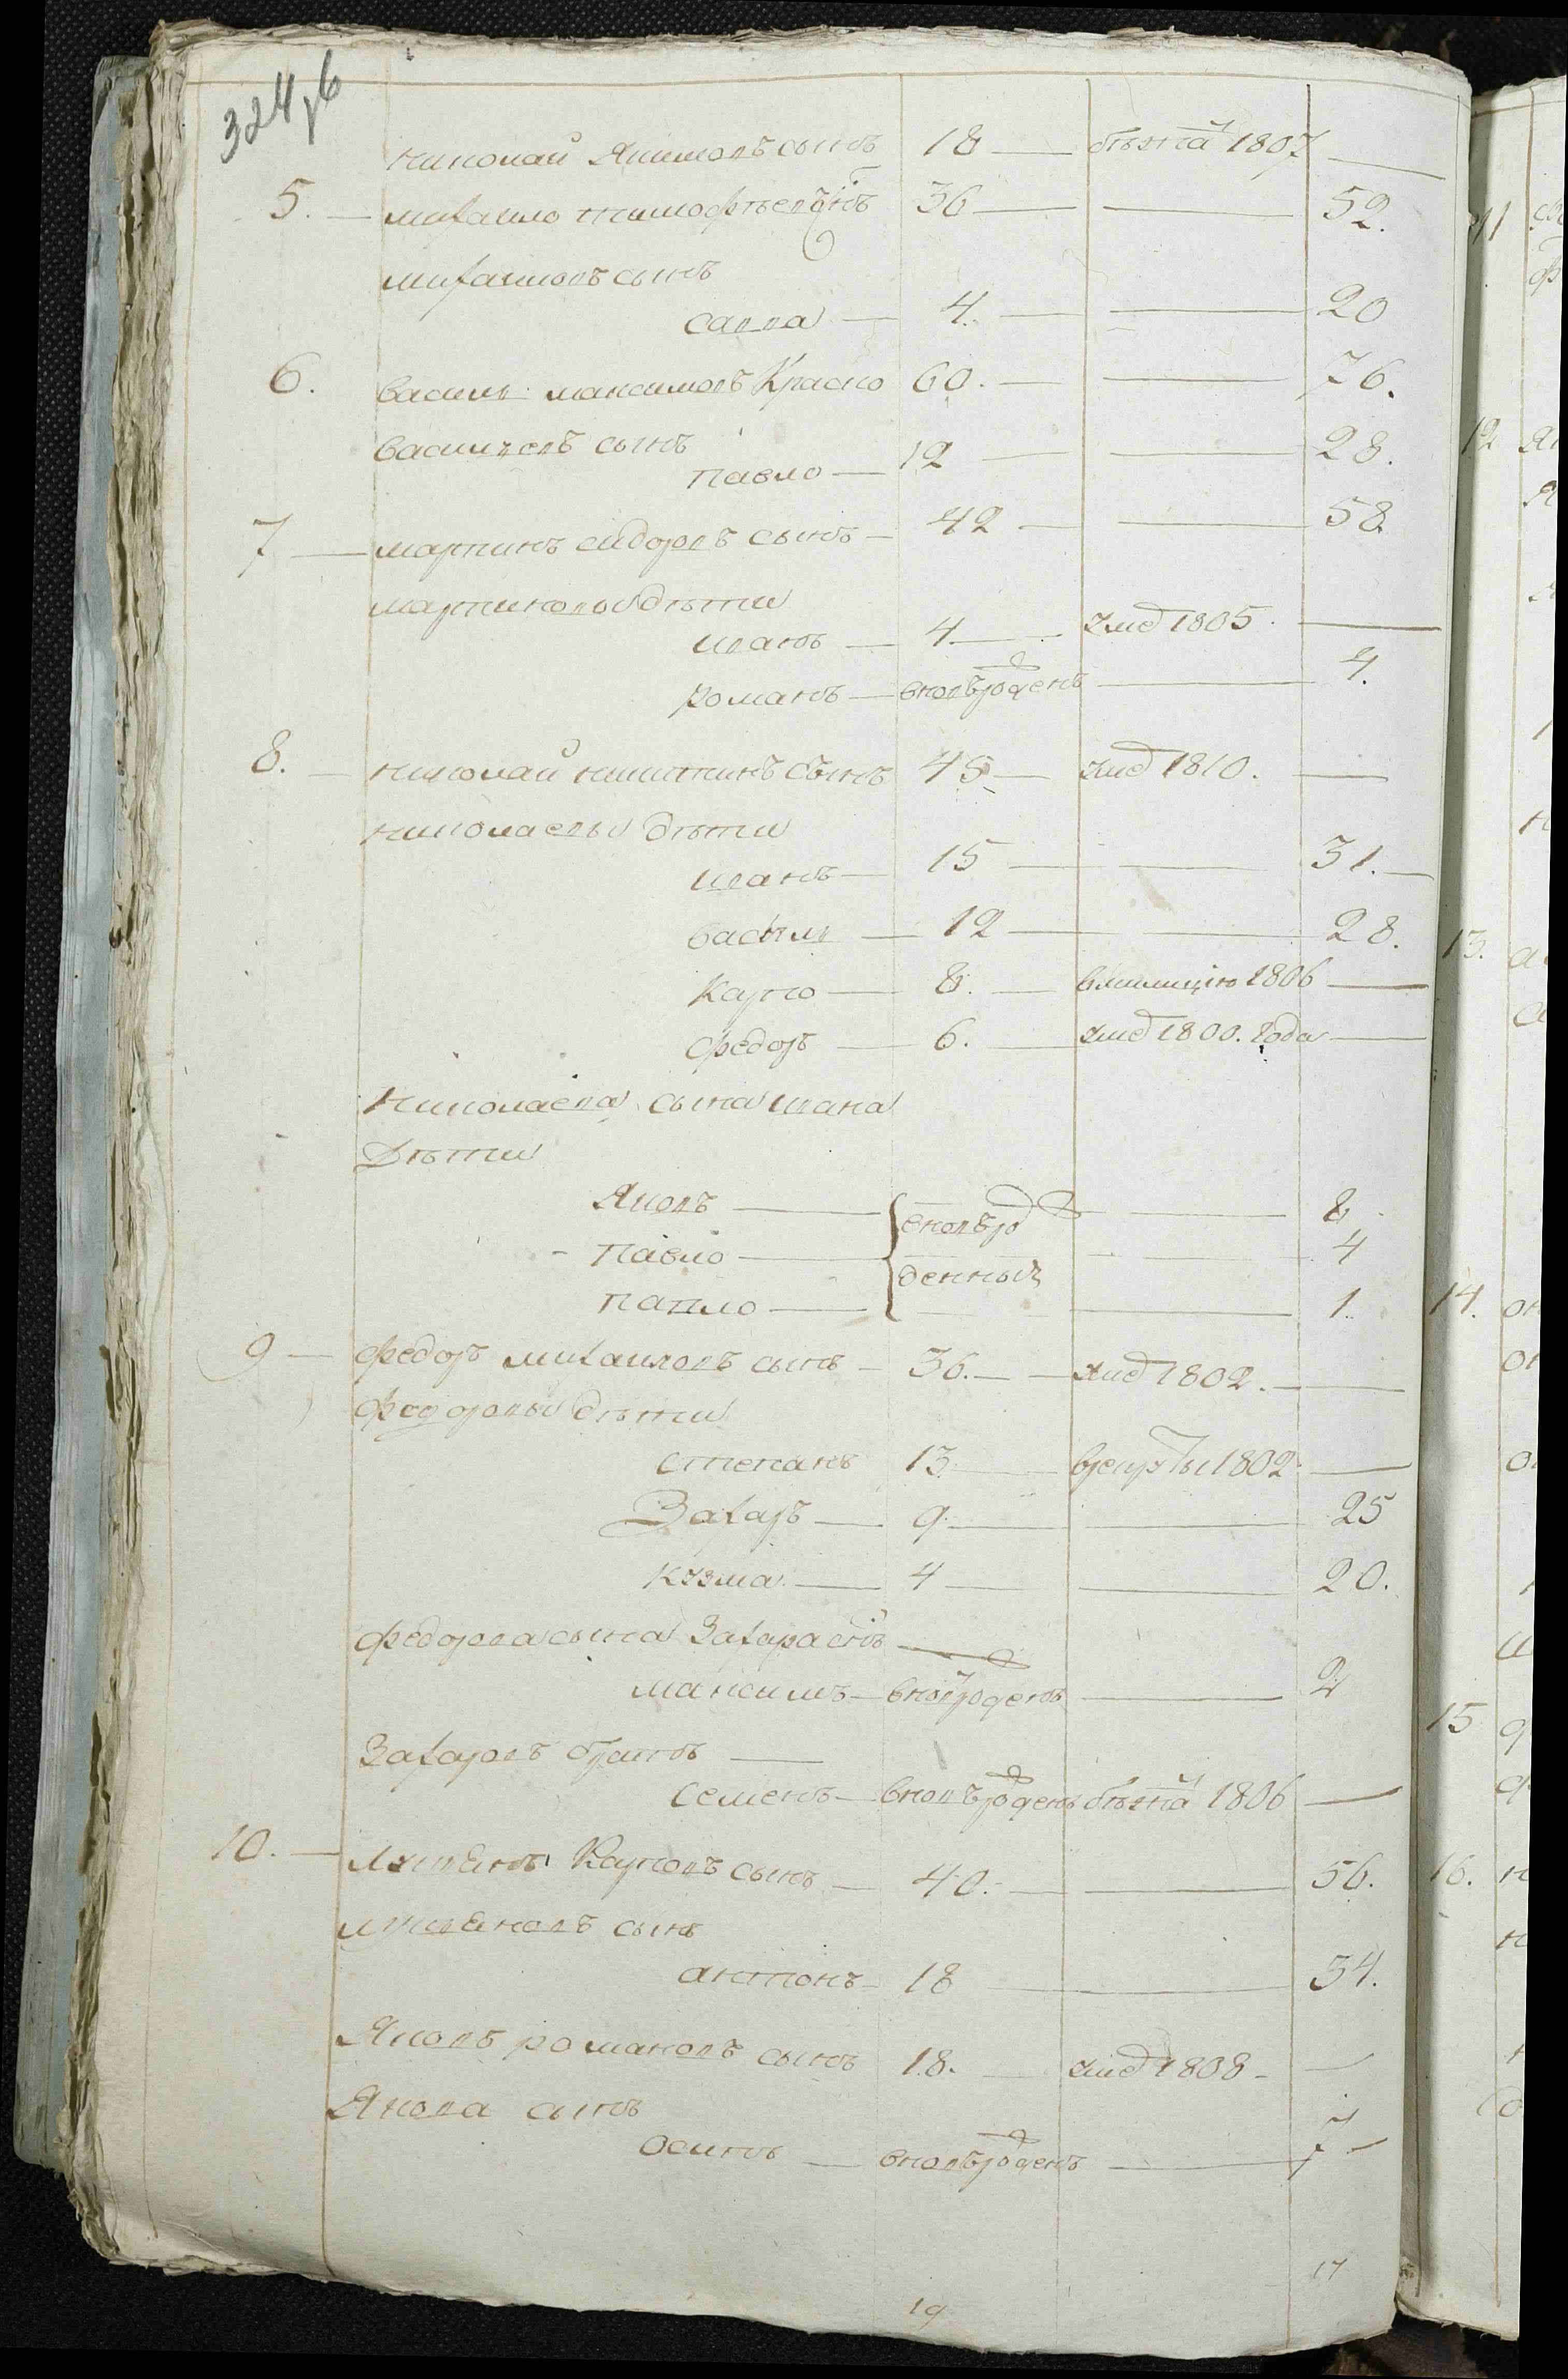 324об
николай Якимовъ сынъ 18 — бѣжа 1807 —
5. — михаило тимофѣевъ снъ 36 — — 52.
михаиловъ сынъ
савва — 4. — — 20
6. василь максимовъ Красно 60. — — 76.
васильевъ сынъ
павло — 12 — — 28.
7 — мартинъ сидоровъ сынъ — 42 — — 58
мартиновы дѣти
иванъ — 4 — умед 1805. —
романъ — вновьрожденъ — 4.
8. — николай никитинъ сынъ 45 — умед 1810. —
николаевы дѣти
иванъ — 15 — — 31. —
василь — 12 — — 28.
Карпо — 8. — вмилицію 1806 —
федоръ — 6. — умед 1800. года —
николаева сына ивана
Дѣти
Яковъ — вновьрож — 8
— павло — денныи — 4
павло — — 1.
9 — федоръ михаиловъ сынъ — 36. — умед 1802. —
федоровы дѣти
степанъ 13. — врекруты 1802 —
Захаръ — 9. — — 25
кузма — 4 — — 20.
федорова сына Захара снъ —
максимъ — вновьрожденъ — 2
Захаровъ братъ —
семенъ — вновьрожденъ бѣжа 1806 —
10. — Карповъ сынъ — 40. — — 56.
сынъ
антонъ — 18 — — 34.
Яковъ романовъ сынъ 18. — умед 1808 — —
Якова сынъ
осипъ — вновьрожденъ — 7 —
19
17
11
12
13.
14.
15
16.